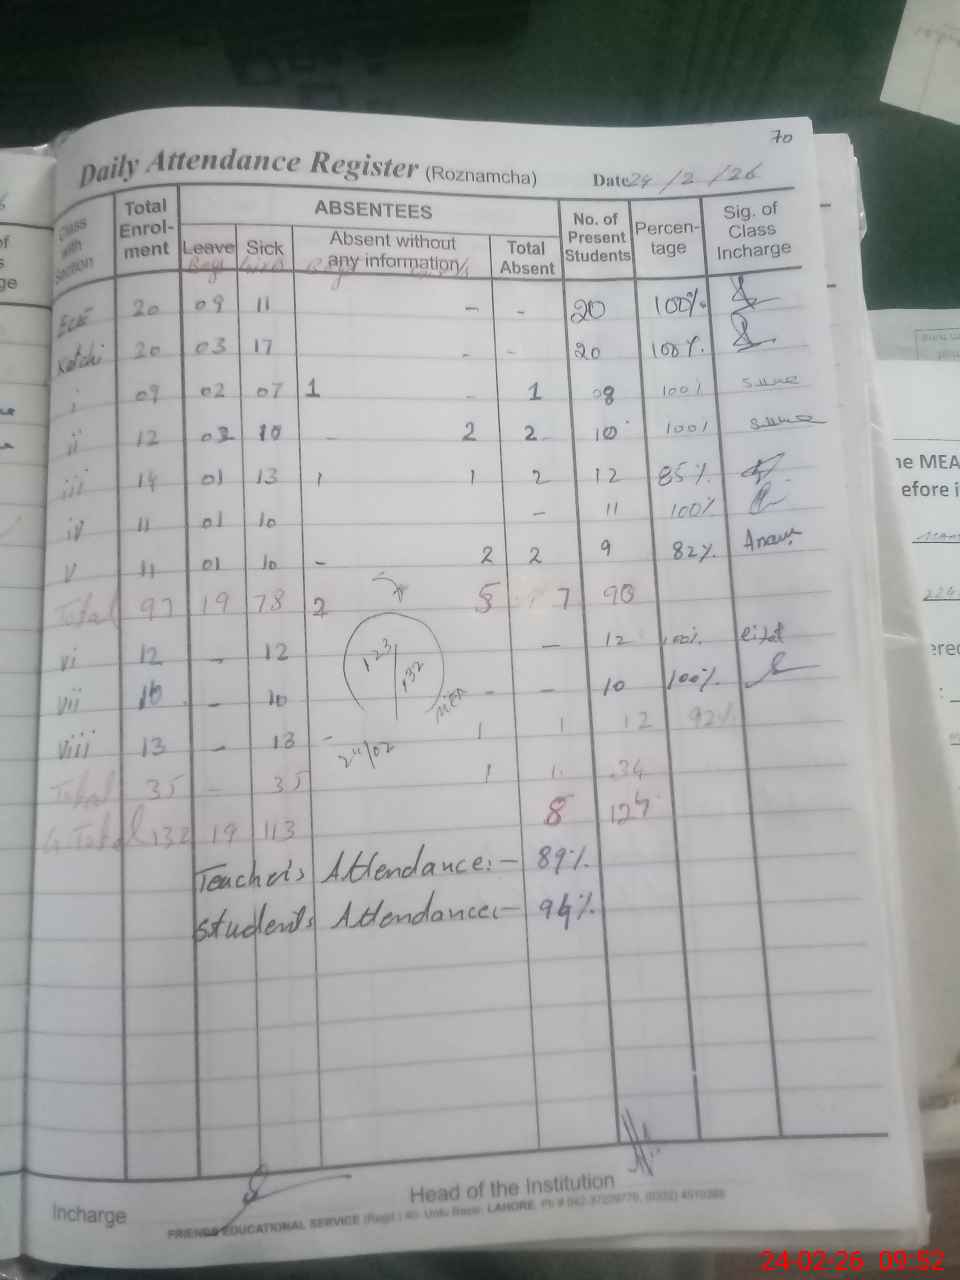 70
Daily Attendance Register (Roznamcha) Date 24/2/26
Class with Section Total Enrol-ment ABSENTEES No. of Present Students Percen-tage Sig. of Class Incharge
Leave Sick Absent without any information Total Absent
Boys Girls Boys
ECE 20 09 11 - - 20 100%
Katchi 20 03 17 - - 20 100%
i 09 02 07 1 - 1 08 100%
ii 12 02 10 - 2 2 10 100%
iii 14 01 13 1 1 2 12 85%
iv 11 01 10 - 11 100%
v 11 01 10 - 2 2 9 82%
Total 97 19 78 2 5 7 90
vi 12 - 12 - 12 100%
vii 10 - 10 - - 10 100%
viii 13 - 13 - 1 1 12 92%
Total 35 - 35 1 1 34
G.Total 132 19 113 8 124
123/132
MEA
24/02
Teacher's Attendance:- 89%
Students Attendance:- 94%
Incharge
Head of the Institution
FRIENDS EDUCATIONAL SERVICE (Regd.) 40- Urdu Bazar, LAHORE.
he MEA
efore i
24-02-26 09:52